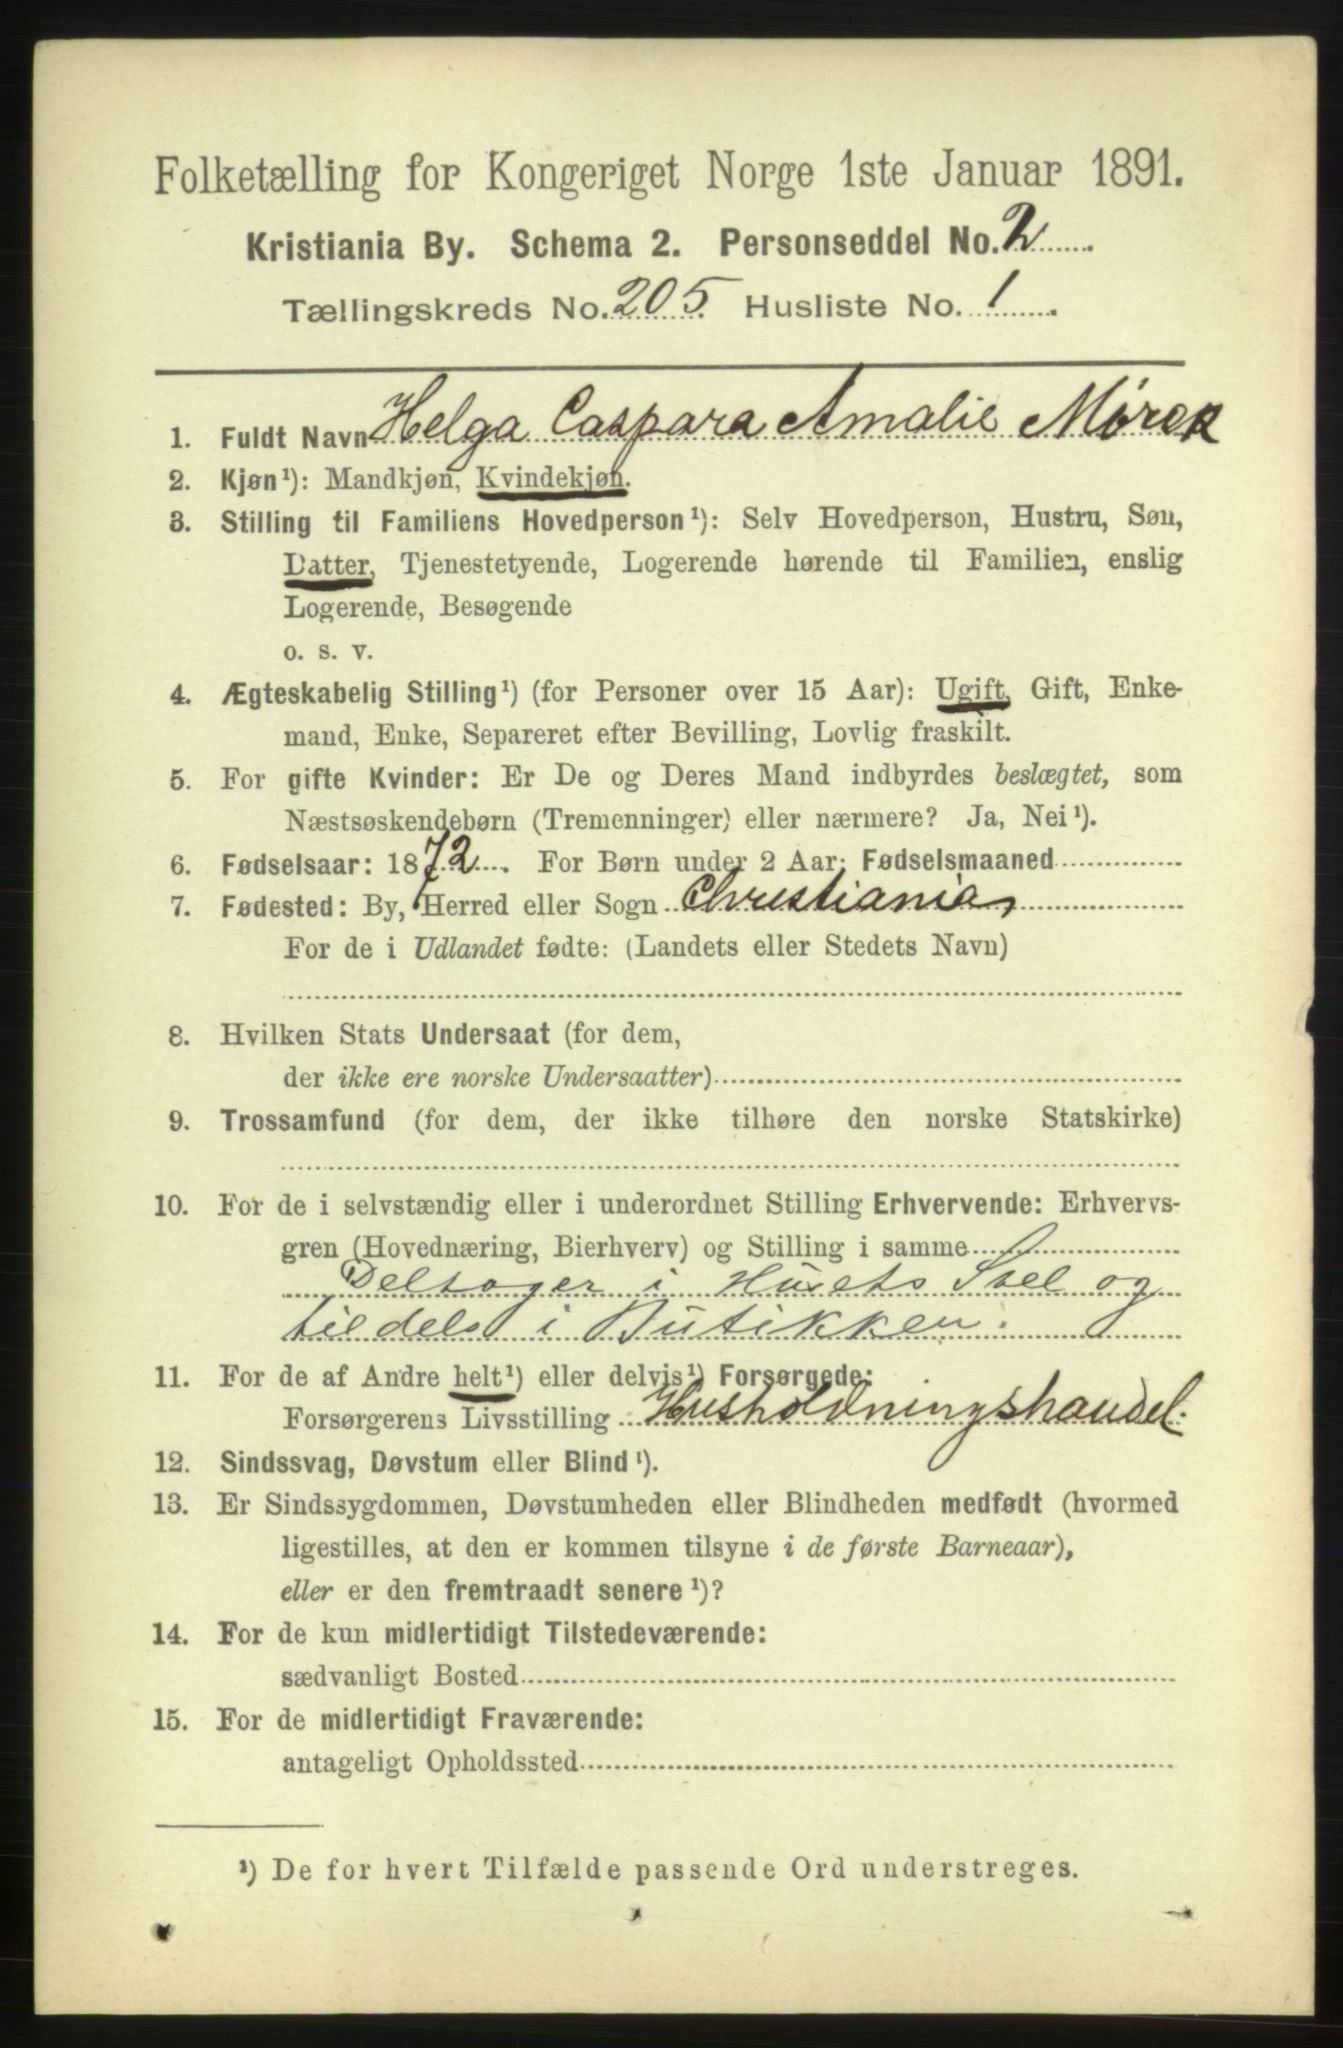 Folketælling for Kongeriget Norge 1ste Januar 1891.
Kristiania By. Schema 2. Personseddel No. 2
Tællingskreds No. 205. Husliste No. 1
1. Fuldt Navn Helga Caspara Amalie Mörck
2. Kjøn¹): Mandkjøn, Kvindekjøn.
3. Stilling til Familiens Hovedperson¹): Selv Hovedperson, Hustru, Søn,
Datter, Tjenestetyende, Logerende hørende til Familien, enslig
Logerende, Besøgende
o. s. v.
4. Ægteskabelig Stilling¹) (for Personer over 15 Aar): Ugift, Gift, Enke-
mand, Enke, Separeret efter Bevilling, Lovlig fraskilt.
5. For gifte Kvinder: Er De og Deres Mand indbyrdes beslægtet, som
Næstsøskendebørn (Tremenninger) eller nærmere? Ja, Nei¹).
6. Fødselsaar: 1872. For Børn under 2 Aar: Fødselsmaaned
7. Fødested: By, Herred eller Sogn Christiania
For de i Udlandet fødte: (Landets eller Stedets Navn)
8. Hvilken Stats Undersaat (for dem,
der ikke ere norske Undersaatter)
9. Trossamfund (for dem, der ikke tilhøre den norske Statskirke)
10. For de i selvstændig eller i underordnet Stilling Erhvervende: Erhvervs-
gren (Hovednæring, Bierhverv) og Stilling i samme
Deltager i Huset's Stel og
tildels i Butikken.
11. For de af Andre helt¹) eller delvis¹) Forsørgede:
Forsørgerens Livsstilling Husholdningshandel.
12. Sindssvag, Døvstum eller Blind¹).
13. Er Sindssygdommen, Døvstumheden eller Blindheden medfødt (hvormed
ligestilles, at den er kommen tilsyne i de første Barneaar),
eller er den fremtraadt senere¹)?
14. For de kun midlertidigt Tilstedeværende:
sædvanligt Bosted
15. For de midlertidigt Fraværende:
antageligt Opholdssted
¹) De for hvert Tilfælde passende Ord understreges.